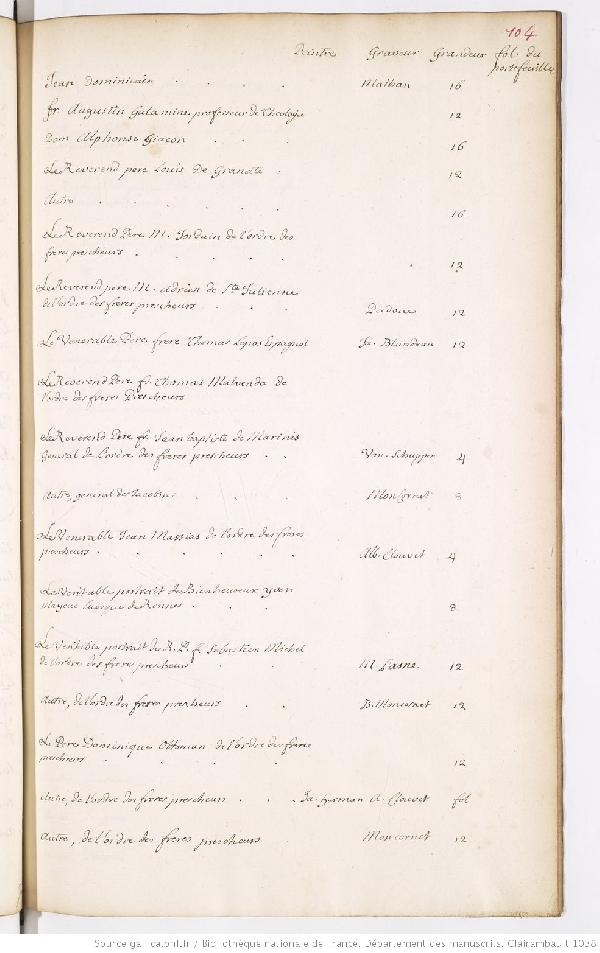 104
Peintre Graveur Grandeur fol. du
portefeuille
Jean Dominicain . . . . Mathan 16
fr. Augustin Galamine, professeur de Theologie 12
Dom Alphonse Giacon . . . 16
Le Reverend pere Louis De Granate . 12
Autre . . . . . 16
Le Reverend Pere M. Jordain de l'ordre des
freres prescheurs . . . . 12
Le Reverend pere M. Adrien de Ste Julienne
de l'ordre des freres prescheurs . . . 12
Le Venerable Pere frere Thomas Espagnol Ja. Blandeau 12
Le Reverend Pere fr. Thomas Malvenda de
l'ordre des freres Prescheurs
Le Reverend Pere fr. Jean baptiste de Marinis
General de l'ordre des freres prescheurs . . Van-Schuppen 4
Autre, general des Jacobins . . . . Moncornet 8
Le Venerable Jean Massias de l'ordre des freres
prescheurs . . . . . Alb. Clouvet 4
Le Veritable portrait du Bienheureux yven
Mayeuc Evesque de Rennes . . . 8
Le Veritable portrait du R. P. f. Sebastien Michel
de l'ordre des freres prescheurs . . M. Lasne 12
Autre, de l'ordre des freres prescheurs . . B. Moncornet 12
Le Pere Dominique Ottoman de l'ordre des freres
prescheurs . . . . 12
Autre, de l'ordre des freres prescheurs . . . Ja. herman A. Clouvet fol
Autre, de l'ordre des freres prescheurs Moncornet 12
Source gallica.bnf.fr / Bibliothèque nationale de France. Département des manuscrits. Clairambault 1038